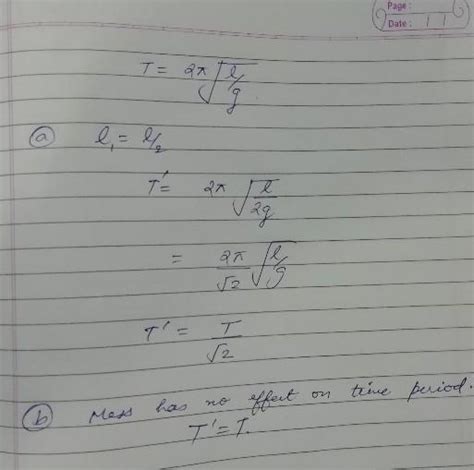 Page :
Date : / /
T = 2π√(l/g)
(a) l₁ = l/2
T' = 2π √(l/2g)
= 2π/√2 √(l/g)
T' = T/√2
(b) Mass has no effect on time period.
T' = T.